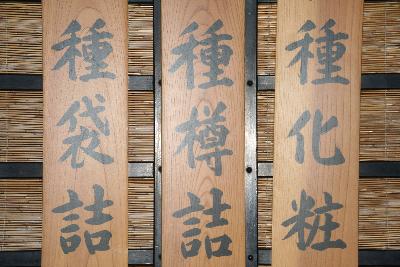 種化粧
種樽詰
種袋詰